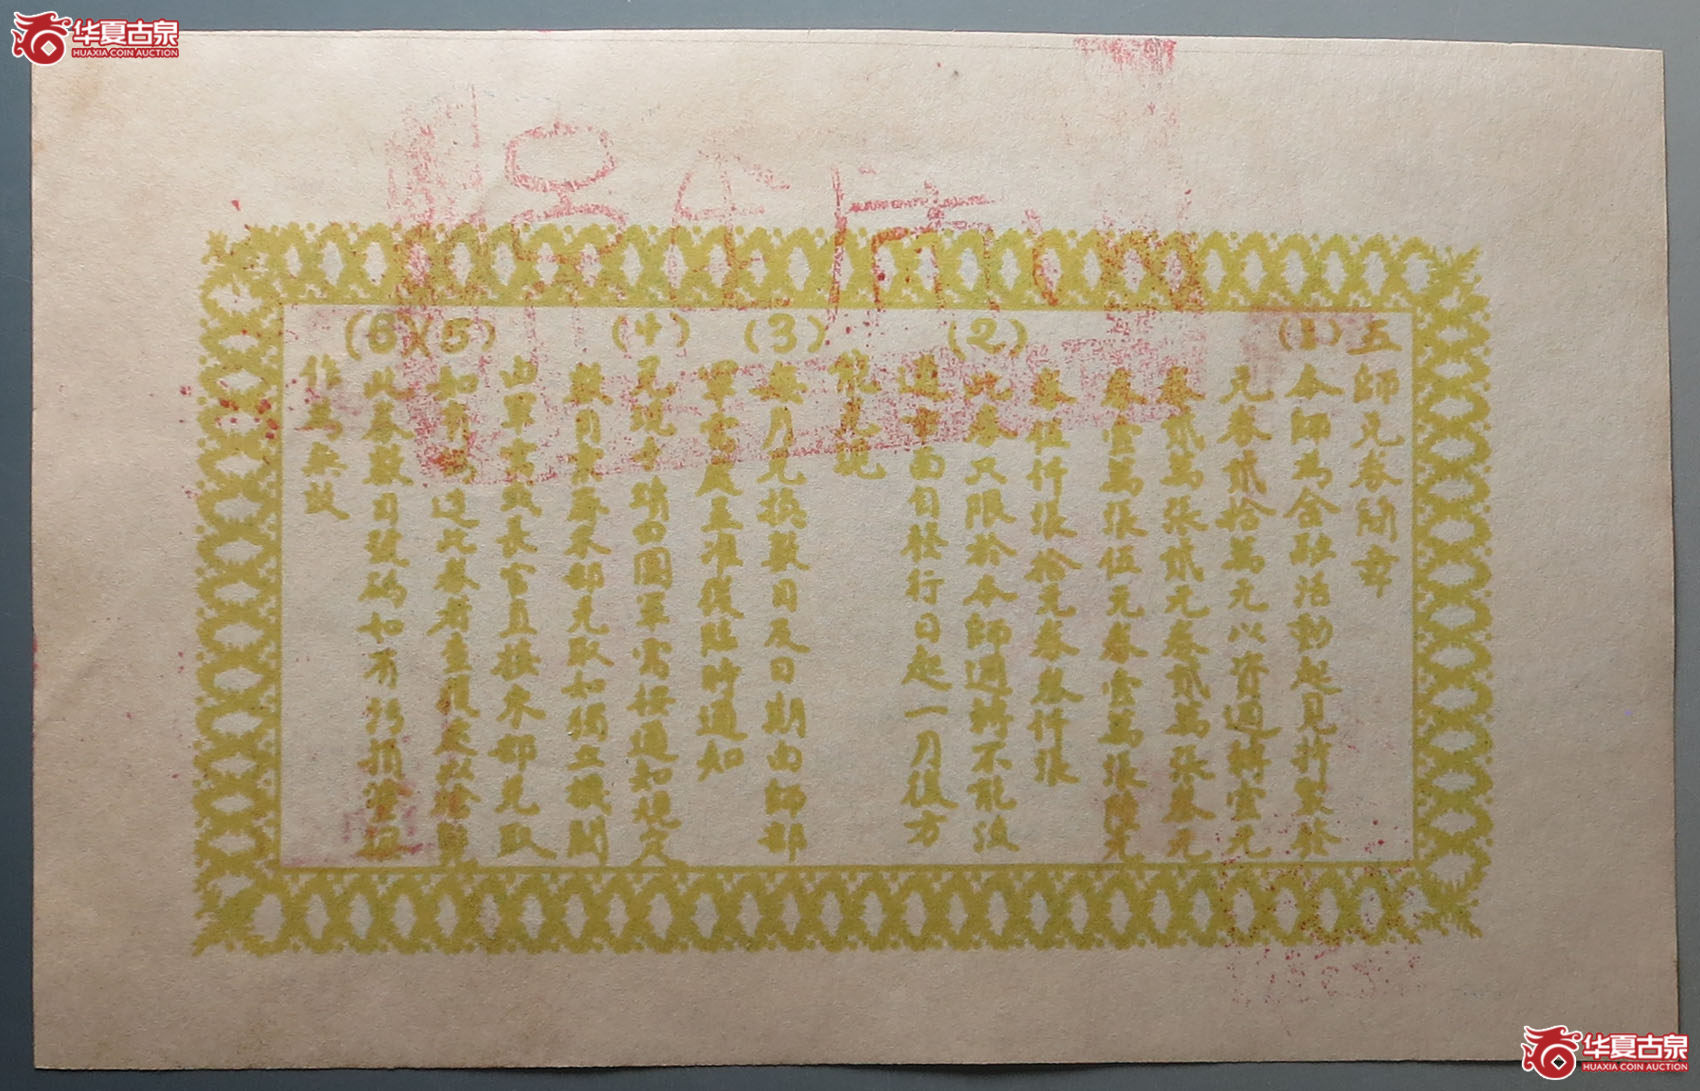 華夏古泉
HUAXIA COIN AUCTION
五師兌券簡章
(1) 本師為金融活動起見折製發
兌券貳拾萬元以資週轉壹元
券貳萬張貳元券貳萬張叁元
券壹萬張伍元券壹萬張陸元
券伍仟張拾元券叁仟張
(2) 此券又限於本師週轉不能汲
進市面自發行日起一月後方
能兌現
(3) 每月兌換數目及日期由師部
軍需處准後臨時通知
(4) 兌現手續由團軍需按通知規定
數目來部兌取如獨立機關
由軍需或長官直接來部兌取
(5) 如有偽造此券者查獲處以槍斃
(6) 此券數目號碼如有污損塗
作為無效
华夏古泉
HUAXIA COIN AUCTION